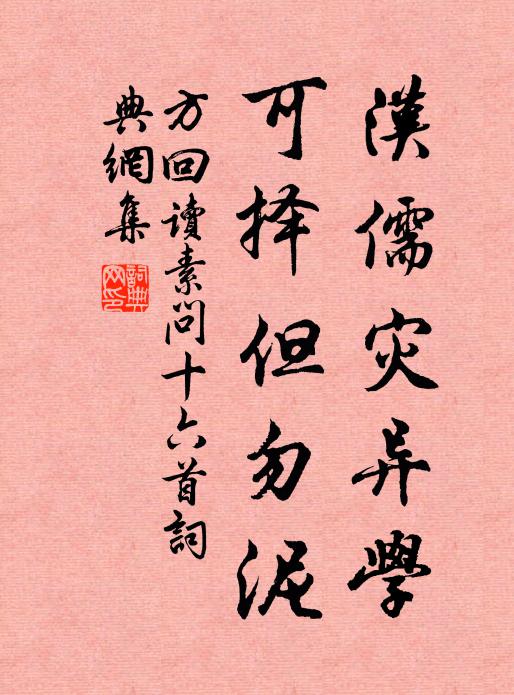 漢儒灾异學
可择但勿泥
方回讀素問十六首詞
典網集
詞典網印